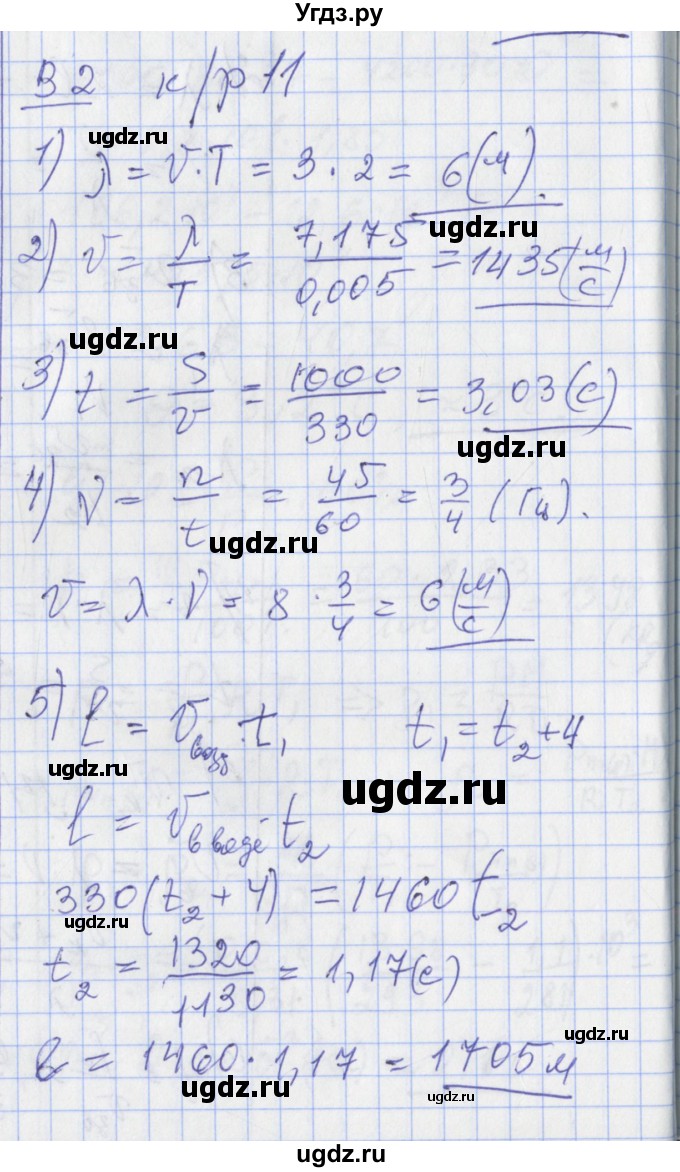 Угдз.ру
В2 к/р 11
ugdz.ru
1) λ = v·T = 3 · 2 = 6(м).
ugdz.ru
2) v = λ/T = 7,175/0,005 = 1435(м/с)
ugdz.ru ugdz.ru
3) t = S/v = 1000/330 = 3,03(с)
ugdz.ru ugdz.ru
4) ν = n/t = 45/60 = 3/4 (Гц).
ugdz.ru
v = λ·ν = 8 · 3/4 = 6(м/с)
5) l = v возд · t₁ t₁ = t₂ + 4
ugdz.ru
ugdz.ru
l = v в воде t₂
330(t₂ + 4) = 1460 t₂
ugdz.ru
t₂ = 1320/1130 = 1,17(с)
ugdz.ru
l = 1460 · 1,17 = 1705м
ugdz.ru ugdz.ru
ugdz.ru